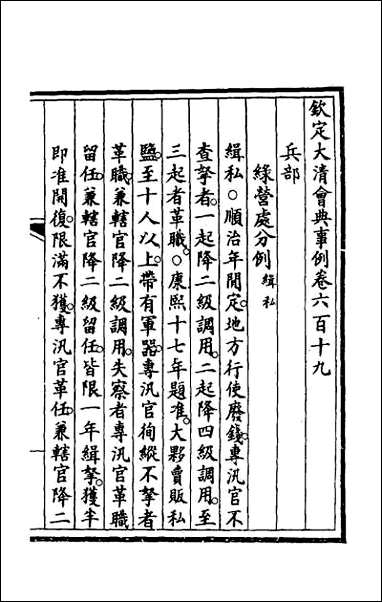 欽定大清會典事例卷六百十九
兵部
綠營處分例緝私
緝私○順治年閒定地方行使廢錢專汛官不
查拏者一起降二級調用二起降四級調用至
三起者革職○康熙十七年題准大夥賣販私
鹽至十人以上帶有軍器專汛官徇縱不拏者
革職兼轄官降二級調用失察者專汛官革職
留任兼轄官降二級留任皆限一年緝拏獲半
即准開復限滿不獲專汛官革任兼轄官降二